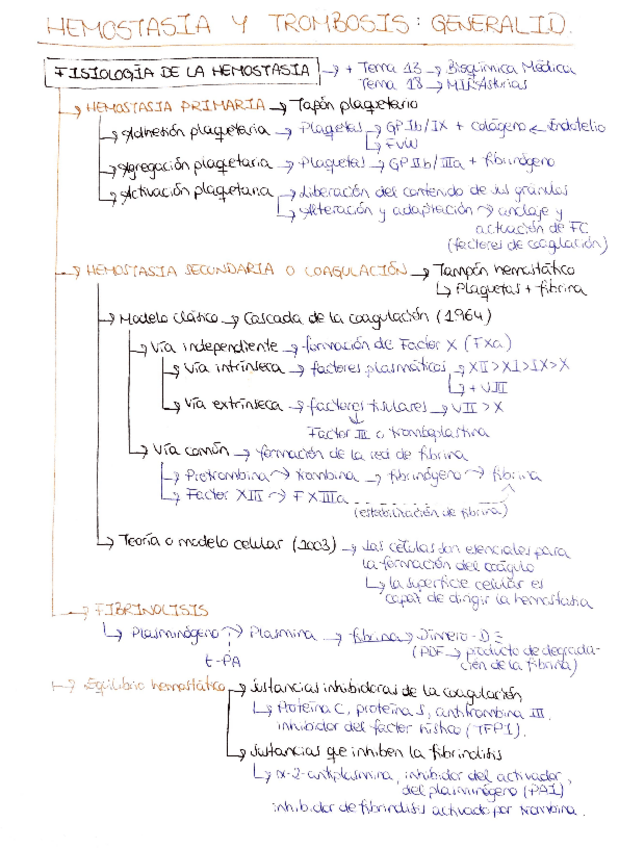 HEMOSTASIA Y TROMBOSIS: GENERALID.
FISIOLOGÍA DE LA HEMOSTASIA → + Tema 13 → Bioquímica Médica
Tema 18 → MIR Asturias
→ HEMOSTASIA PRIMARIA → Tapón plaquetario
→ Adhesión plaquetaria → Plaquetas → GPIb/IX + colágeno ← Endotelio
→ FvW
→ Agregación plaquetaria → Plaquetas → GPIIb/IIIa + fibrinógeno
→ Activación plaquetaria → Liberación del contenido de sus gránulos
→ Alteración y adaptación → anclaje y
actuación de FC
(factores de coagulación)
→ HEMOSTASIA SECUNDARIA O COAGULACIÓN → Tampón hemostático
→ Plaquetas + fibrina
→ Modelo clásico → Cascada de la coagulación (1964)
→ Vía independiente → formación de Factor X (FXa)
→ Vía intrínseca → factores plasmáticos → XII > XI > IX > X
→ + VIII
→ Vía extrínseca → factores tisulares → VII > X
Factor III o tromboplastina
→ Vía común → formación de la red de fibrina
→ Protrombina → trombina → fibrinógeno → fibrina
→ Factor XIII → FXIIIa
(estabilización de fibrina)
→ Teoría o modelo celular (2003) → las células son esenciales para
la formación del coágulo
→ la superficie celular es
capaz de dirigir la hemostasia
→ FIBRINOLISIS
→ Plasminógeno → Plasmina → fibrina → Dímero-D
(PDF → producto de degrada-
ción de la fibrina)
t-PA
→ Equilibrio hemostático → Sustancias inhibidoras de la coagulación
→ Proteína C, proteína S, antitrombina III.
inhibidor del factor tisular (TFPI).
→ Sustancias que inhiben la fibrinolisis
→ α-2-antiplasmina, inhibidor del activador
del plasminógeno (PAI)
inhibidor de fibrinolisis activado por trombina.